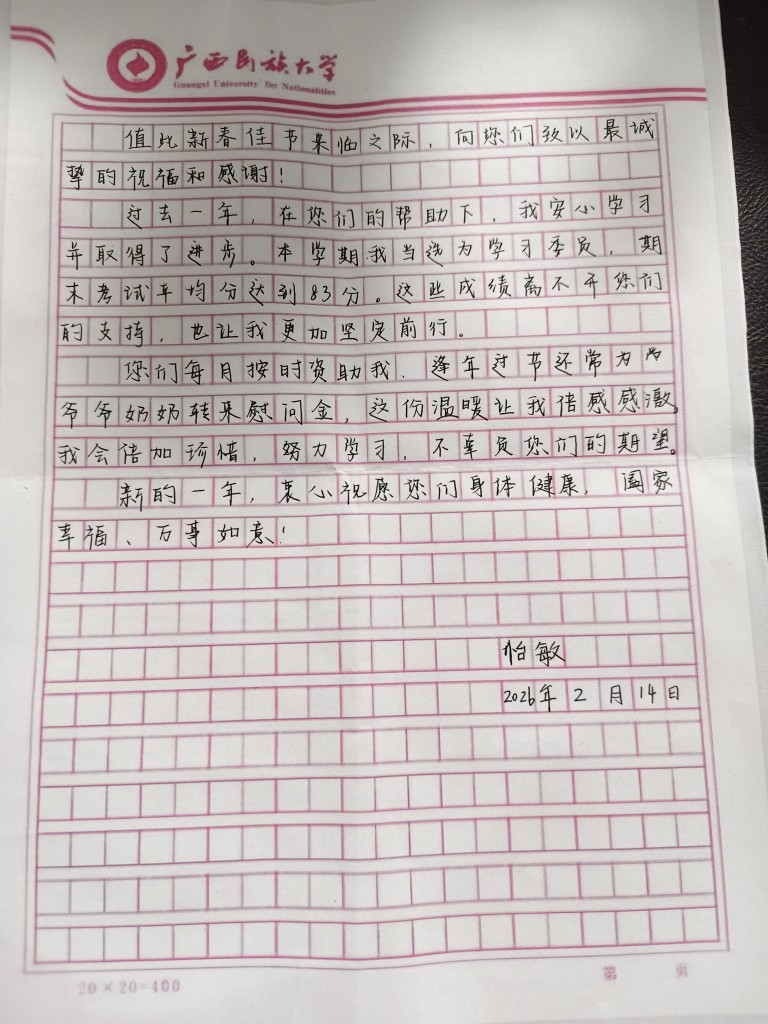 广西民族大学
Guangxi University for Nationalities
值此新春佳节来临之际，向您们致以最诚
挚的祝福和感谢！
过去一年，在您们的帮助下，我安心学习
并取得了进步。本学期我当选为学习委员，期
末考试平均分达到83分。这些成绩离不开您们
的支持，也让我更加坚定前行。
您们每月按时资助我，逢年过节还常为
爷爷奶奶转来慰问金，这份温暖让我倍感感激。
我会倍加珍惜，努力学习，不辜负您们的期望。
新的一年，衷心祝愿您们身体健康，阖家
幸福、万事如意！
怡敏
2026年2月14日
20×20=400
第 页